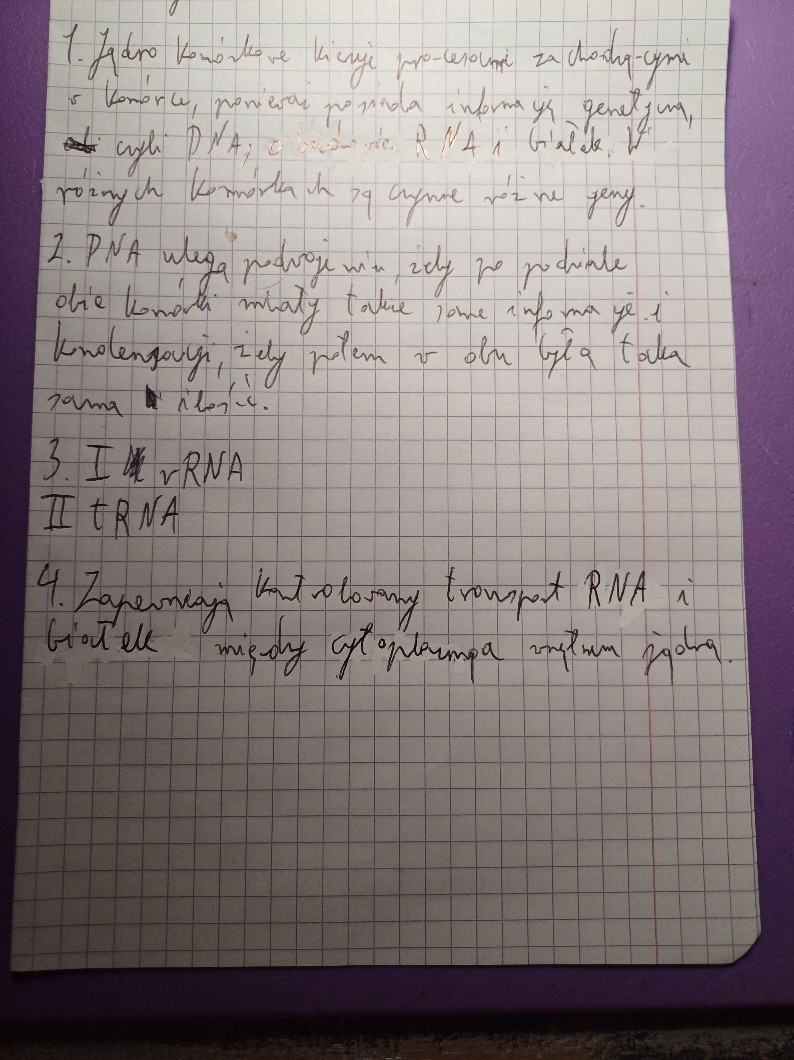 1. Jądro komórkowe kieruje procesami zachodzą-cymi
w komórce, ponieważ posiada informację genetyczną,
czyli DNA, o budowie RNA i białek. W
różnych komórkach są czynne różne geny.
2. DNA ulega podwojeniu, żeby po podziale
obie komórki miały takie same informacje i
kondensacji, żeby potem w obu była taka
sama ilość.
3. I rRNA
II tRNA
4. Zapewniają kontrolowany transport RNA i
białek między cytoplazmą a wnętrzem jądra.